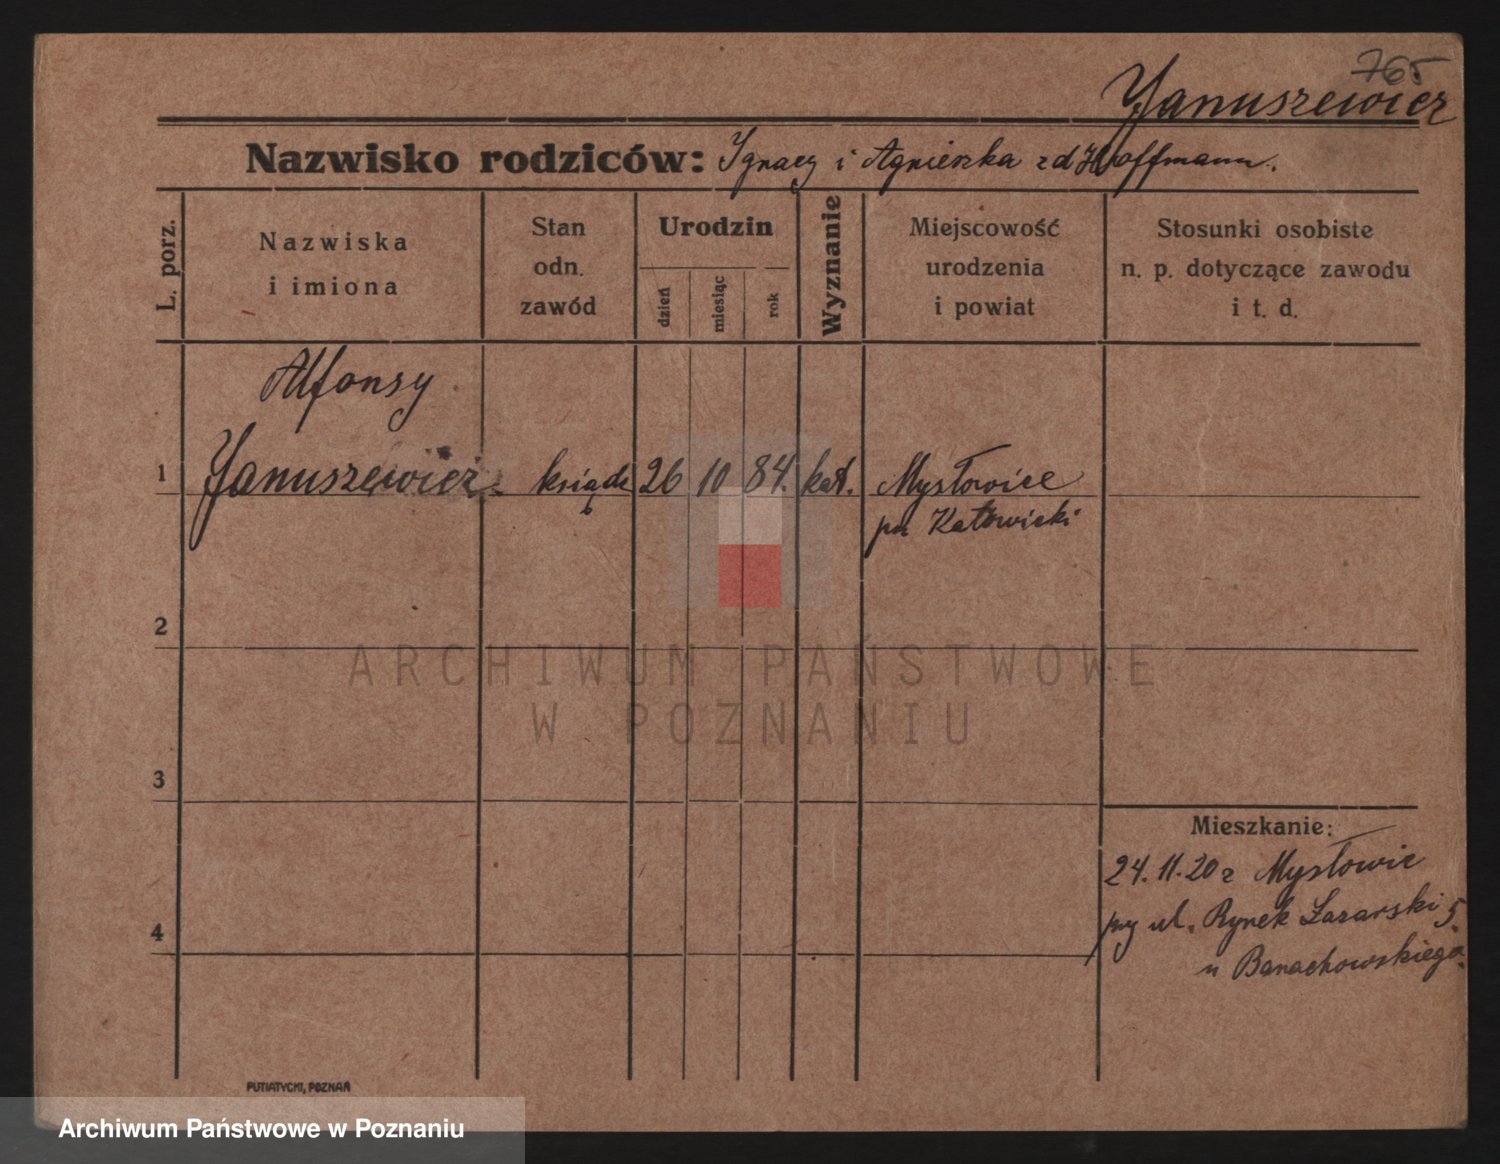 765
Januszewicz
Nazwisko rodziców: Ignacy i Agnieszka z d Hoffmann.
L. porz.
Nazwiska
i imiona
Stan
odn.
zawód
Urodzin
dzień
miesiąc
rok
Wyznanie
Miejscowość
urodzenia
i powiat
Stosunki osobiste
n. p. dotyczące zawodu
i t. d.
Alfonsy
1 Januszewicz ksiądz 26 10 84. kat. Mysłowice
pow Katowicki
2
ARCHIWUM PAŃSTWOWE
W POZNANIU
3
Mieszkanie:
24.11.20 z Mysłowic
przy ul. Rynek Łazarski 5.
4
u Banachowskiego.
PUTIATYCKI, POZNAŃ
Archiwum Państwowe w Poznaniu